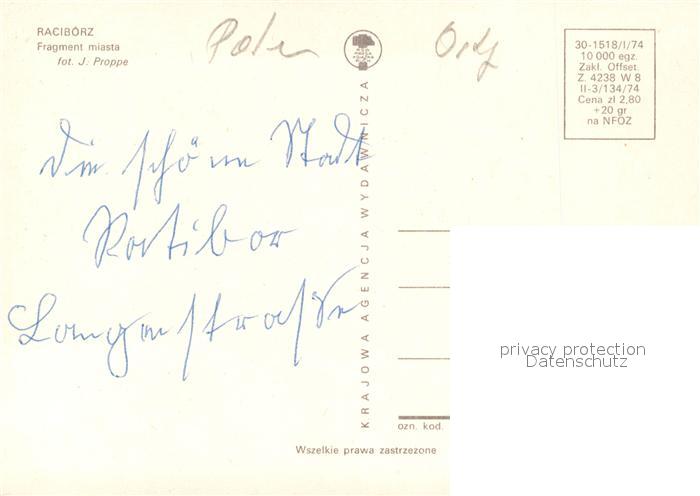 RACIBÓRZ
Fragment miasta
fot. J. Proppe
Polen
30-1518/I/74
10 000 egz.
Zakł. Offset.
Z. 4238 W 8
II-3/134/74
Cena zł 2,80
+20 gr
na NFOZ
KRAJOWA AGENCJA WYDAWNICZA
die schöne Stadt
Ratibor
Langenstraße
privacy protection
Datenschutz
ozn. kod.
Wszelkie prawa zastrzeżone